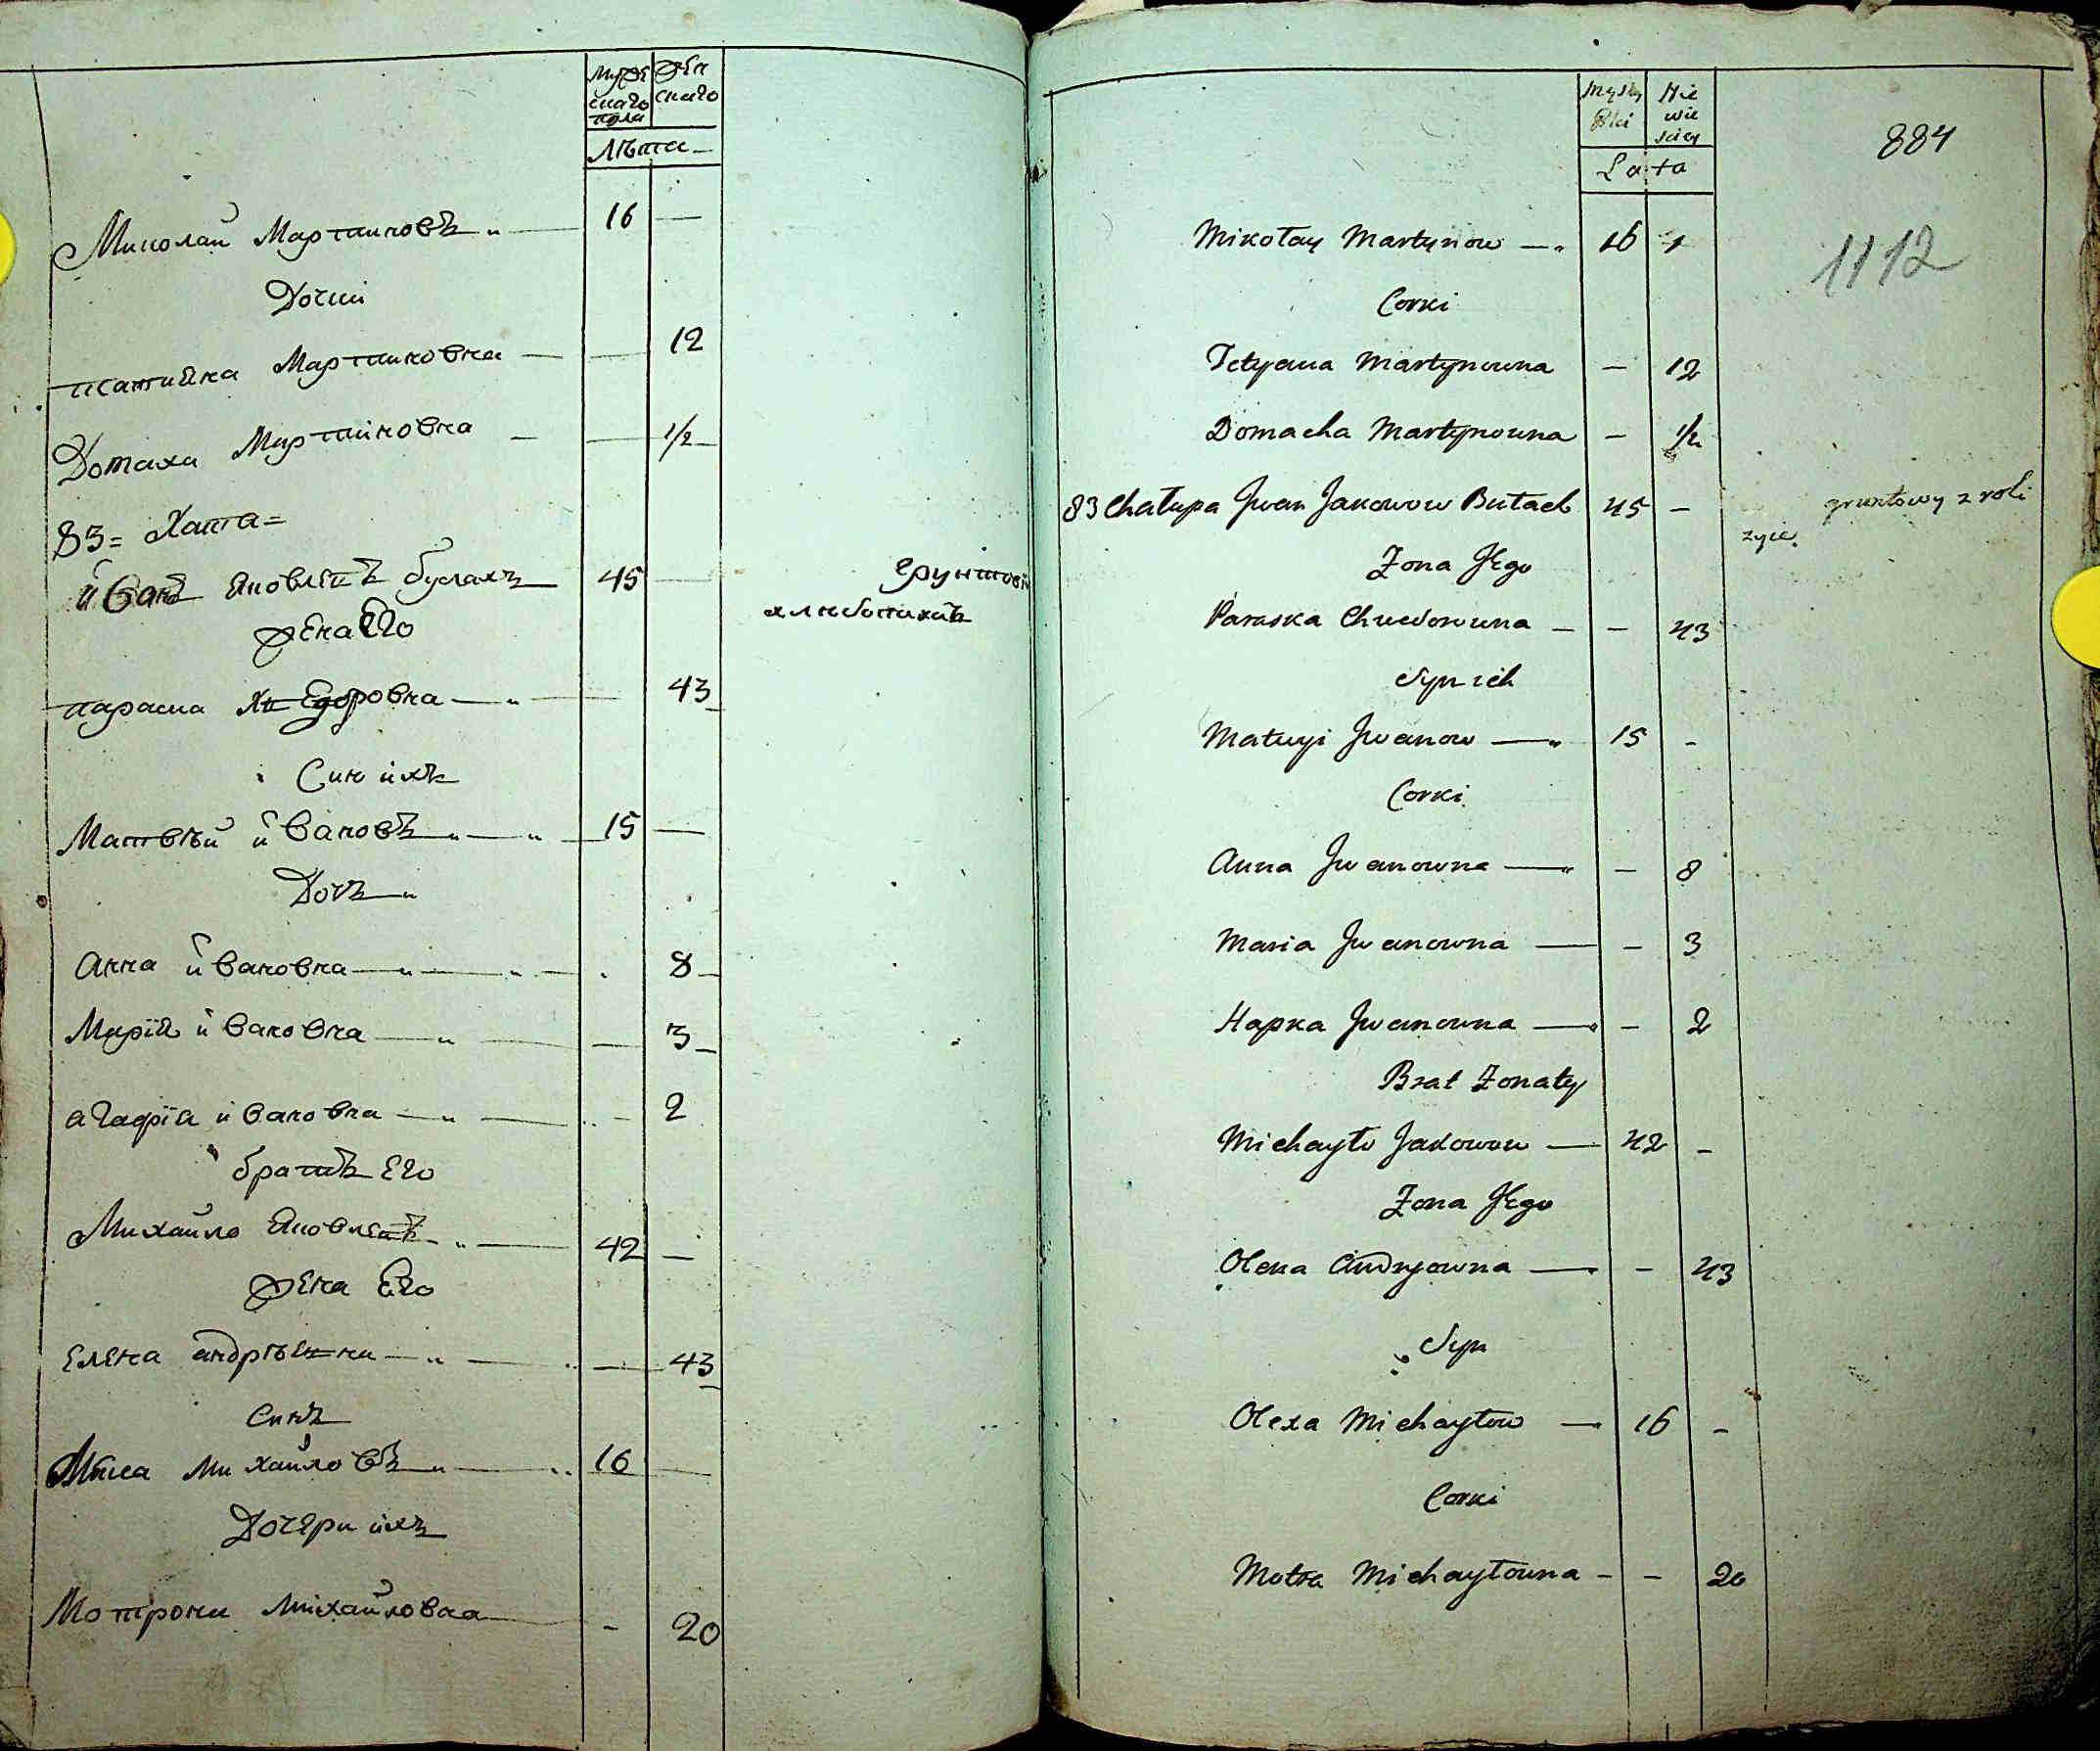 Муже Жен
скаго скаго
пола
Лѣта
Миколай Мартиновъ 16 —
Дочки
татияна Мартиновна — 12
Домаха Мартиновна — 1/2
83 = Хата =
иванъ яковлевъ булахъ 45 —
жена Его
параска хведоровна — 43
Синъ ихъ
Матвѣй ивановъ 15 —
Дочъ
Анна ивановна 8
Марія ивановна — 3
агафія ивановна — 2
братъ Его
Михайло яковлевъ 42 —
жена Его
Елена андрѣевна — 43
Синъ
Михайловъ 16 —
Дочери ихъ
Мотрона Михайловна - 20
грунтовій
хлѣбопахатъ
884
1112
Męzky Nie
Płci wie
sciey
Lata
Mikołay Martynow — 16
Corki
Tetyana Martynowna — 12
Domacha Martynowna — 1/2
83 Chałupa Jwan Jakowow Bułach 45 —
gruntowy z roli
zyie.
Zona Jego
Paraska Chwedorowna — — 43
Syn ich
Matwyi Jwanow — 15 -
Corki
Anna Jwanowna — — 8
Maria Jwanowna — - 3
Hapka Jwanowna — - 2
Brat Zonaty
Michayło Jakowow — 42 -
Zona Jego
Olena Andryowna — - 43
Syn
Olexa Michayłow — 16 -
Corki
Motra Michayłowna - - 20